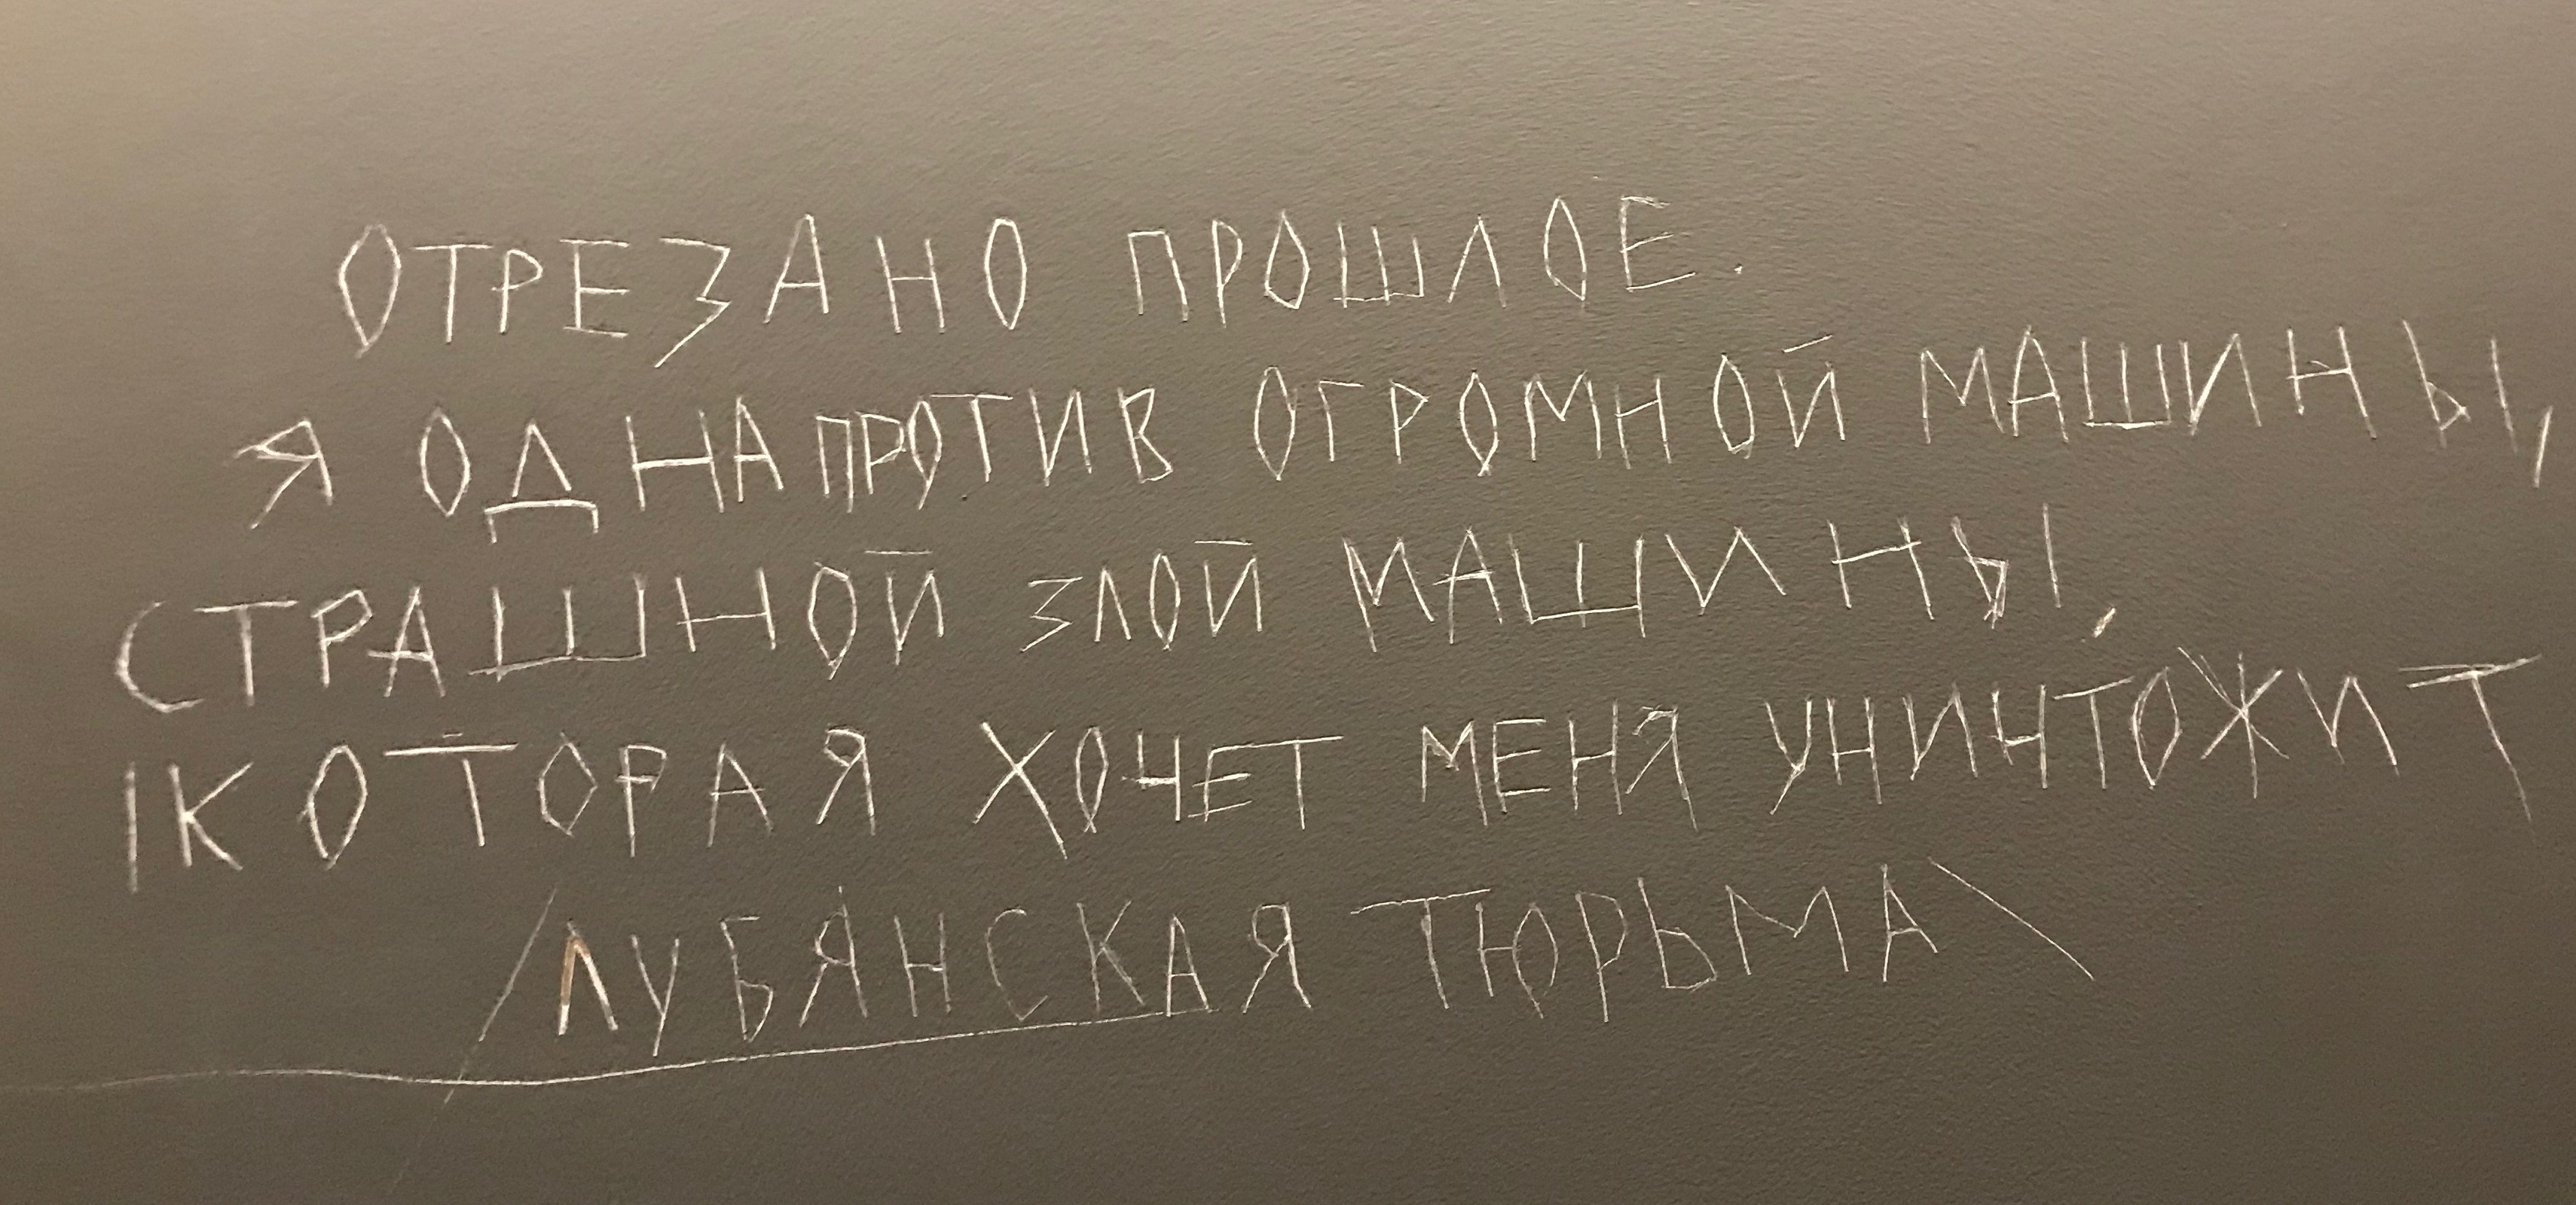 ОТРЕЗАНО ПРОШЛОЕ.
Я ОДНА ПРОТИВ ОГРОМНОЙ МАШИНЫ,
СТРАШНОЙ ЗЛОЙ МАШИНЫ,
КОТОРАЯ ХОЧЕТ МЕНЯ УНИЧТОЖИТ
/ЛУБЯНСКАЯ ТЮРЬМА\